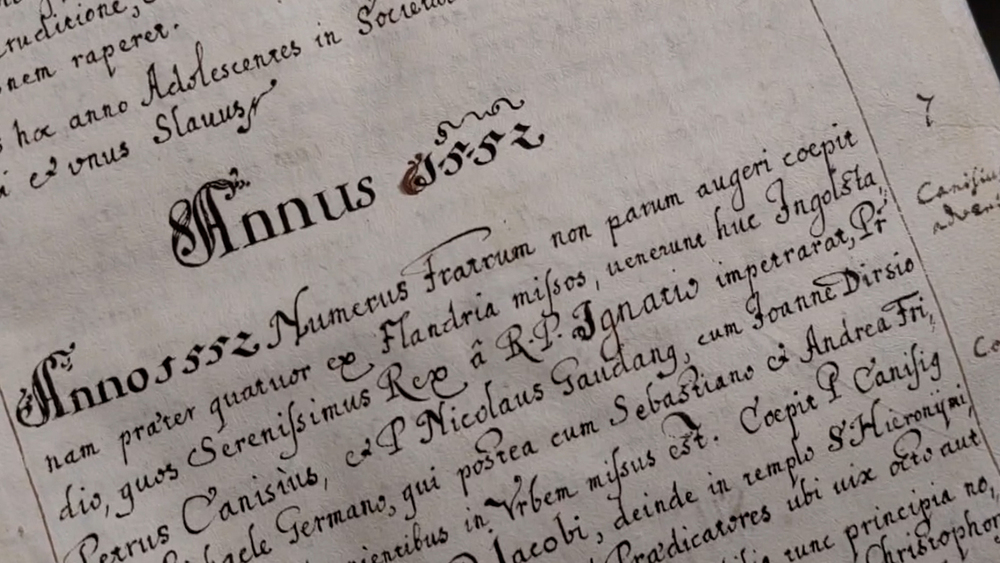 ruditione,
nem raperet.
hoc anno Adolescentes in Societa
et vnus Slauus
Annus 1552
7
Anno 1552 Numerus Fratrum non parum augeri coepit
Canisiu
nam præter quatuor ex Flandria missos, uenerunt huc Ingolsta,
dio, quos Serenissimus Rex â R.P. Ignatio impetrarat, Pr
Petrus Canisius, et P Nicolaus Gaudang, cum Joanne Dirsio
Germano, qui postea cum Sebastiano et Andrea Fri,
in Vrbem missus est. Coepit P Canisig
Jacobi, deinde in templo S Hieronymi,
Prædicatores ubi uix octo aut
tunc principia no,
Christophor